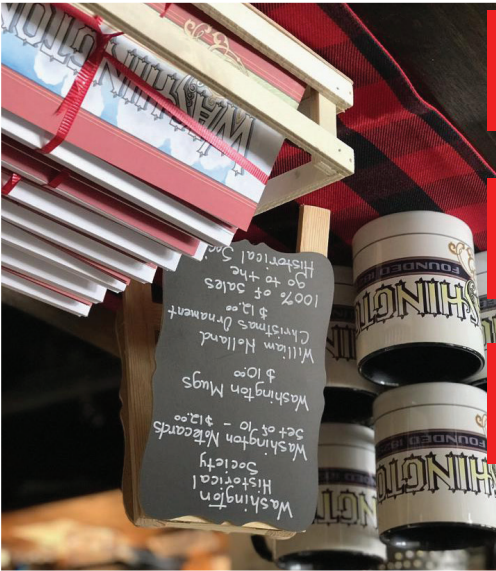 Washington
Historical
Society
Washington Notecards
Set of 10 - $12.00
Washington Mugs
$10.00
William Holland
Christmas Ornament
$12.00
100% of sales
go to the
Historical Soci
WASHINGTON
SHINGTO
FOUNDED 18
SHINGTO
FOUNDED 18